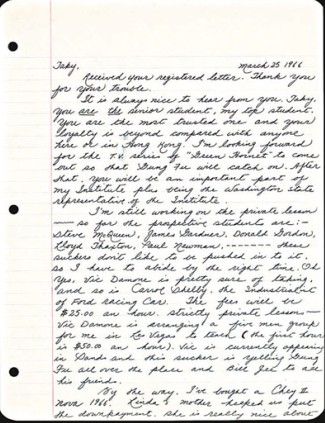 Taky, March 25 1966
Received your registered letter. Thank you
for your trouble.
It is always nice to hear from you, Taky.
You are the senior student, my top student.
You are the most trusted one and your
loyalty is beyond compared with anyone
here or in Hong Kong. I'm looking forward
for the T.V. series of "Green Hornet" to come
out so that Gung Fu will catch on. After
that, you will be an important part of
my Institute plus being the Washington State
representative of the Institute.
I'm still working on the private lesson
— so far the prospective students are: —
Steve McQueen, James Gardner, Donald Gordon,
Lloyd Thaxton, Paul Newman, ------- these
suckers don't like to be pushed in to it.
so I have to abide by the right time. Oh
yes, Vic Damone is pretty sure of taking,
and so is Carol Shelby, the Industrialist
of Ford racing Car. The fees will be
$25.00 an hour. strictly private lessons —
Vic Damone is arranging a five men group
for me in Las Vegas to teach (the first hour
is $50.00 an hour). Vic is currently appearing
in Sands and this sucker is yelling Gung
Fu all over the place and Bruce Lee to all
his friends.
By the way, I've bought a Chevy II
nova 1966. Linda's mother helped us put
the downpayment. she is really nice about